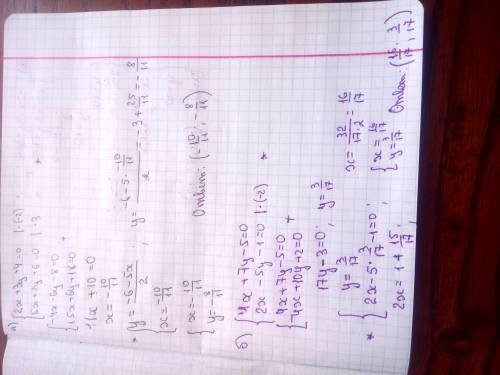 а) {2x+3y+4=0 |·(-2)
{5x+2y+6=0 |·3
{-4x-6y-8=0
{15x+6y+18=0 +
11x+10=0
x=-10/11
* {y=(-6-5x)/2, y=(-6-5·(-10/11))/2=-3+25/11=-8/11
{x=-10/11
{x=-10/11
{y=-8/11 Ответ: (-10/11; -8/11)
б) {4x+7y-5=0
{2x-5y-1=0 |·(-2) *
{4x+7y-5=0
{-4x+10y+2=0 +
17y-3=0; y=3/17
* {y=3/17
{2x-5·3/17-1=0;
2x=1+15/17; x=32/(17·2)=16/17
{x=16/17
{y=3/17 Ответ: (16/17; 3/17)